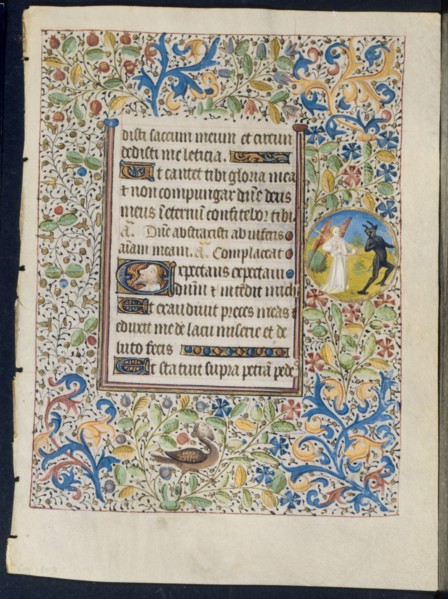 disti saccum meum et circum
dedisti me leticia.
Ut cantet tibi gloria mea
⁊ non compungar dñe deus
meus ĩ eternũ confitebor tibi
A. Dñe abstraxisti ab inferis
aĩam meam. A. Complaceat
Expectans expectaui
dñm ⁊ intẽdit michi
Et exaudiuit preces meas ⁊
eduxit me de lacu miserie et de
luto fecis
Et statuit supra petrã pede